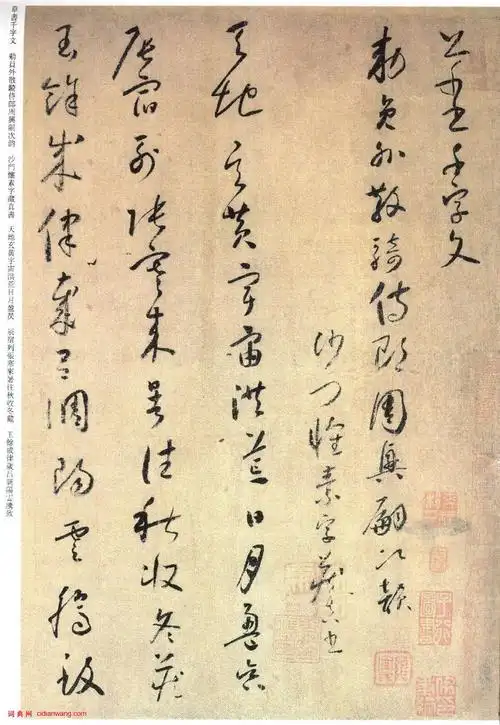 草書千字文
勅員外散騎侍郎周興嗣次韻
沙門懷素字藏真書
天地玄黃宇宙洪荒日月盈昃
辰宿列張寒來暑往秋收冬藏
閏餘成律歲呂調陽雲騰致
草書千字文 勅員外散騎侍郎周興嗣次韻 沙門懷素字藏真書 天地玄黃宇宙洪荒日月盈昃 辰宿列張寒來暑往秋收冬藏 餘成律歲呂調陽雲騰致
词典网 cidianwang.com